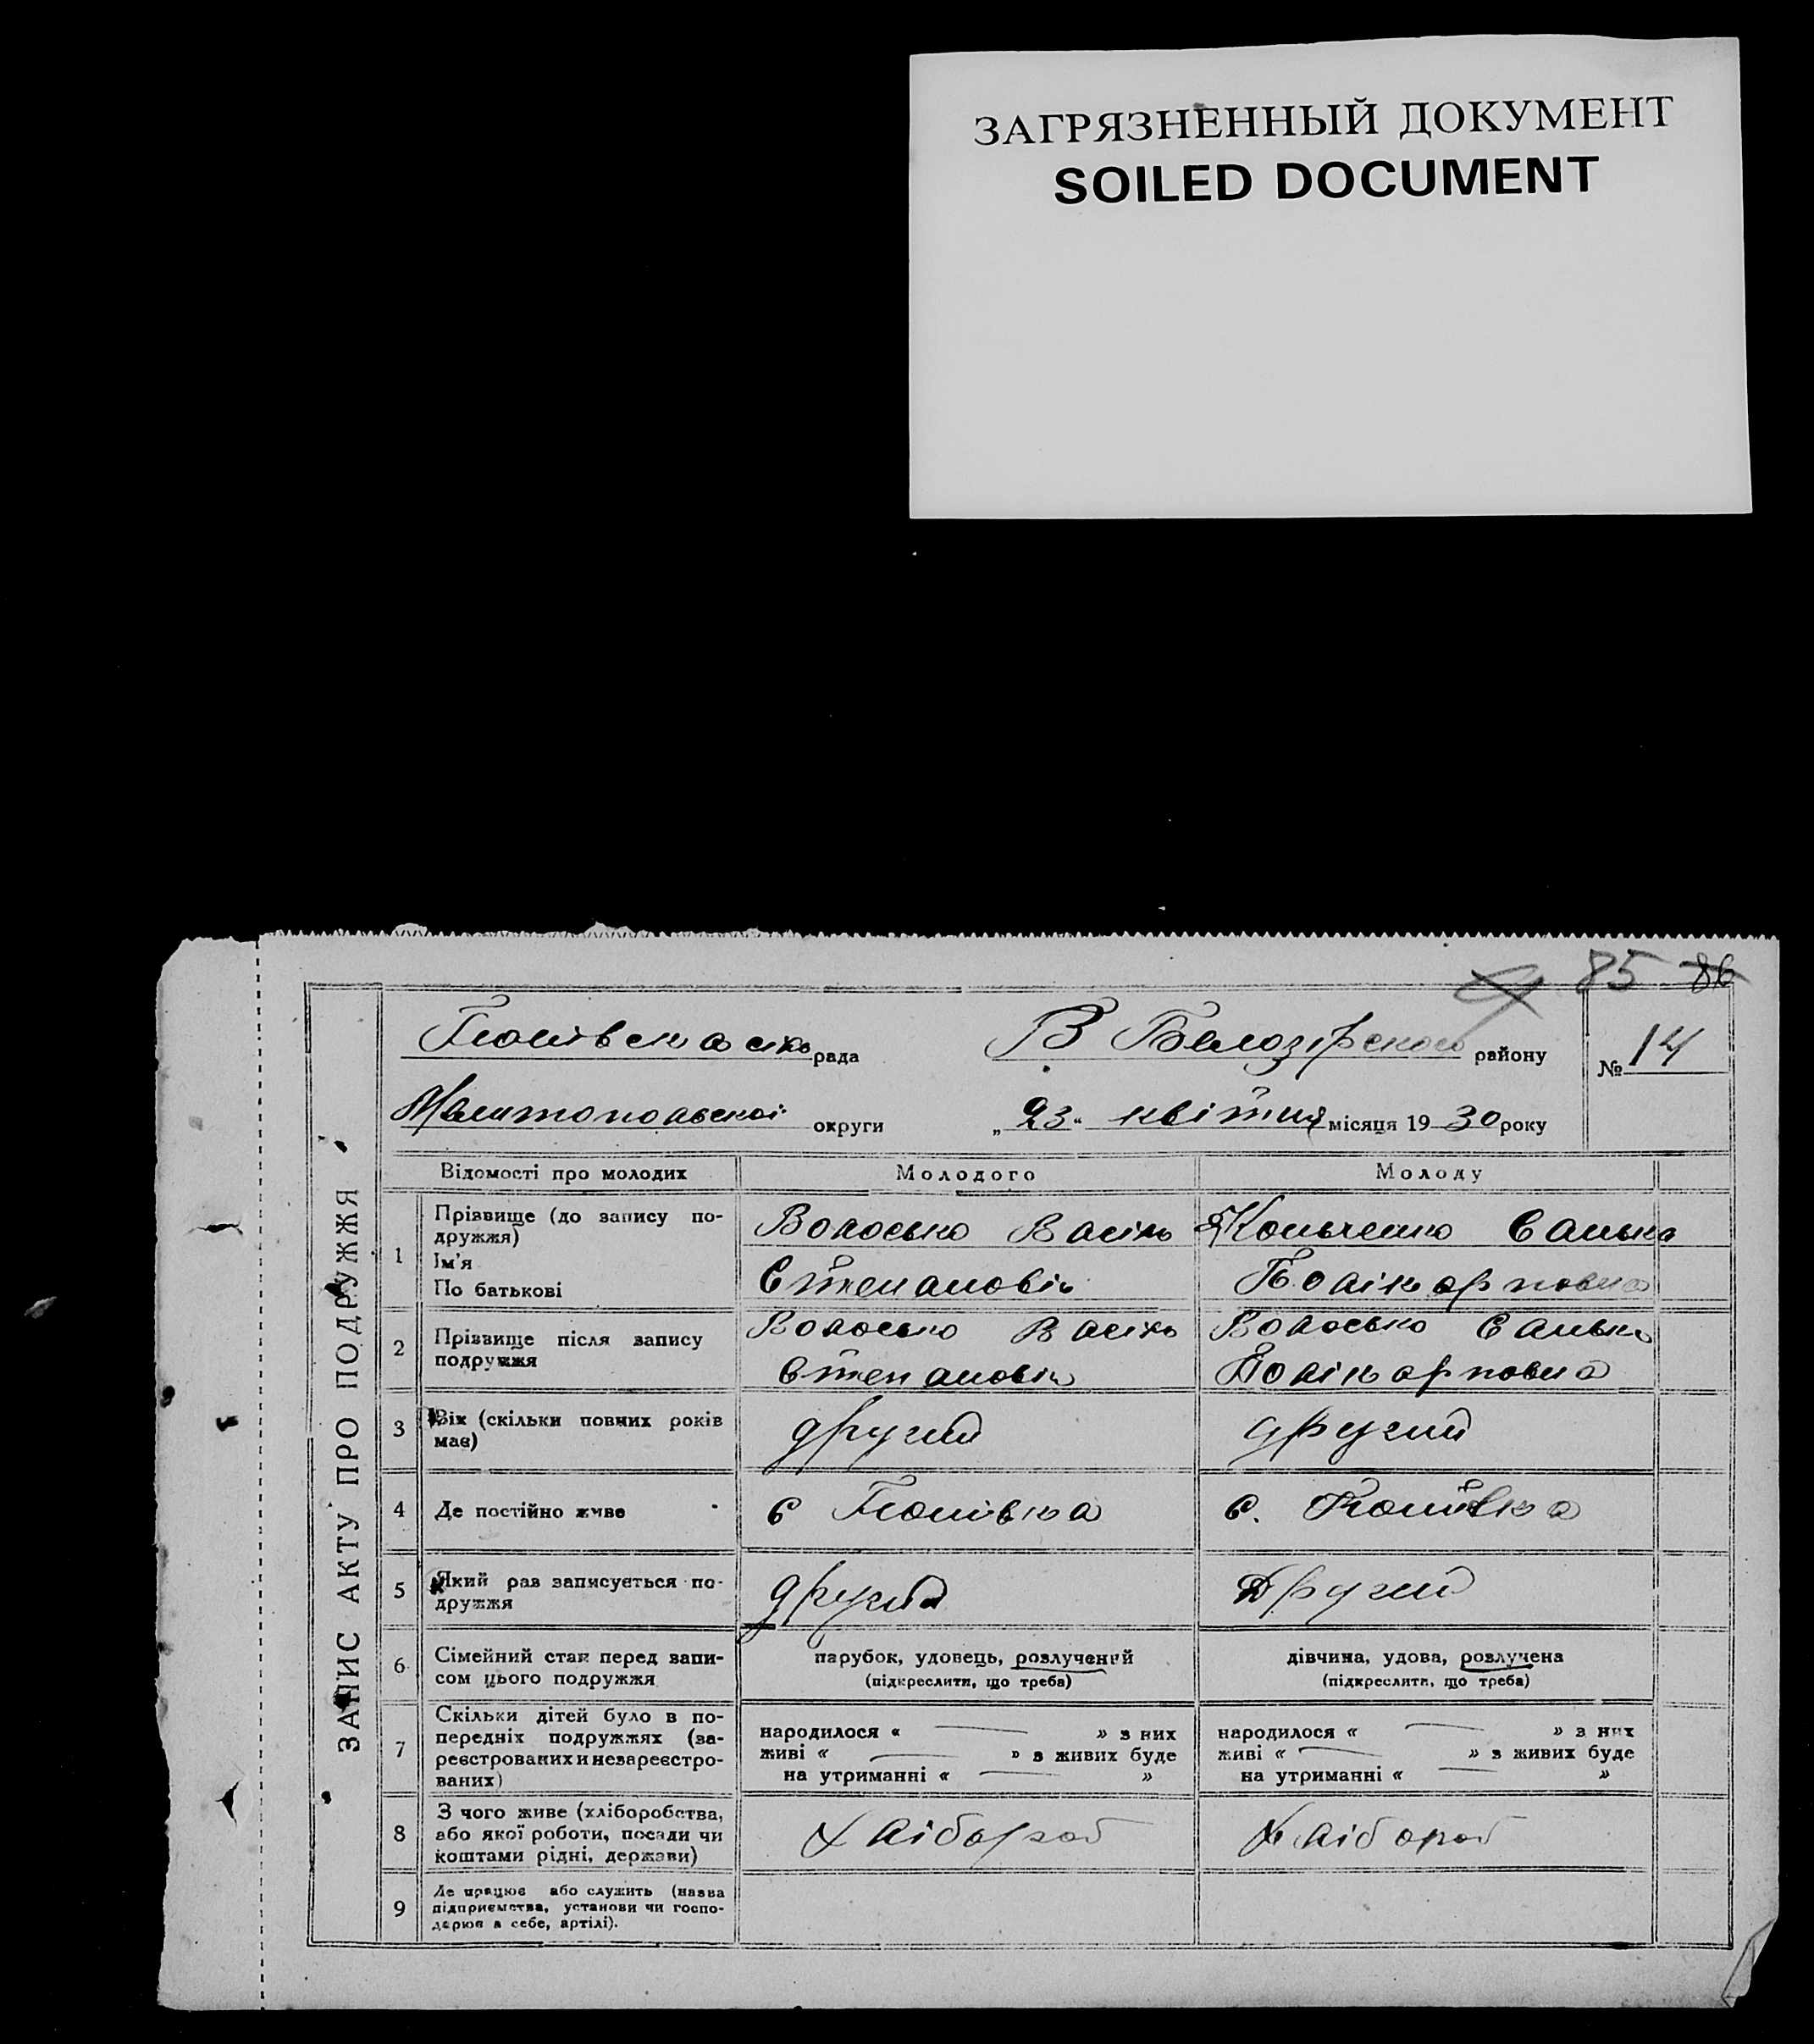 ЗАГРЯЗНЕННЫЙ ДОКУМЕНТ
SOILED DOCUMENT
85 86
ЗАПИС АКТУ ПРО ПОДРУЖЖЯ
рада
В Белозірского району
№ 14
Мелитопольскої округи
„23“ квітня місяця 1930 року
Відомості про молодих
Молодого
Молоду
1
Прізвище (до запису по-
дружжя)
Ім'я
По батькові
Волосько Васіль
Степановіч
Санька
Полікарповна
2
Прізвище після запису
подружжя
Волосько Васіль
Степановіч
Волосько Санька
Полікарповна
3
Вік (скільки повних років
має)
другий
другий
4
Де постійно живе
с
с.
5
Який раз записується по-
дружжя
другий
Другий
6
Сімейний стан перед запи-
сом цього подружжя
парубок, удовець, розлучений
(підкреслити, що треба)
дівчина, удова, розлучена
(підкреслити, що треба)
7
Скільки дітей було в по-
передніх подружжях (за-
реєстрованих и незареєстро-
ваних)
народилося « — » з них
живі « — » з живих буде
на утриманні « — »
народилося « — » з них
живі « — » з живих буде
на утриманні « — »
8
З чого живе (хліборобства,
або якої роботи, посади чи
коштами рідні, держави)
Хлібороб
Хлібороб
9
Де працює або служить (назва
підприємства, установи чи госпо-
дарює в себе, артілі).